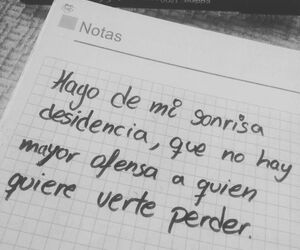 Notas
Hago de mi sonrisa
desidencia, que no hay
mayor ofensa a quien
quiere verte perder.